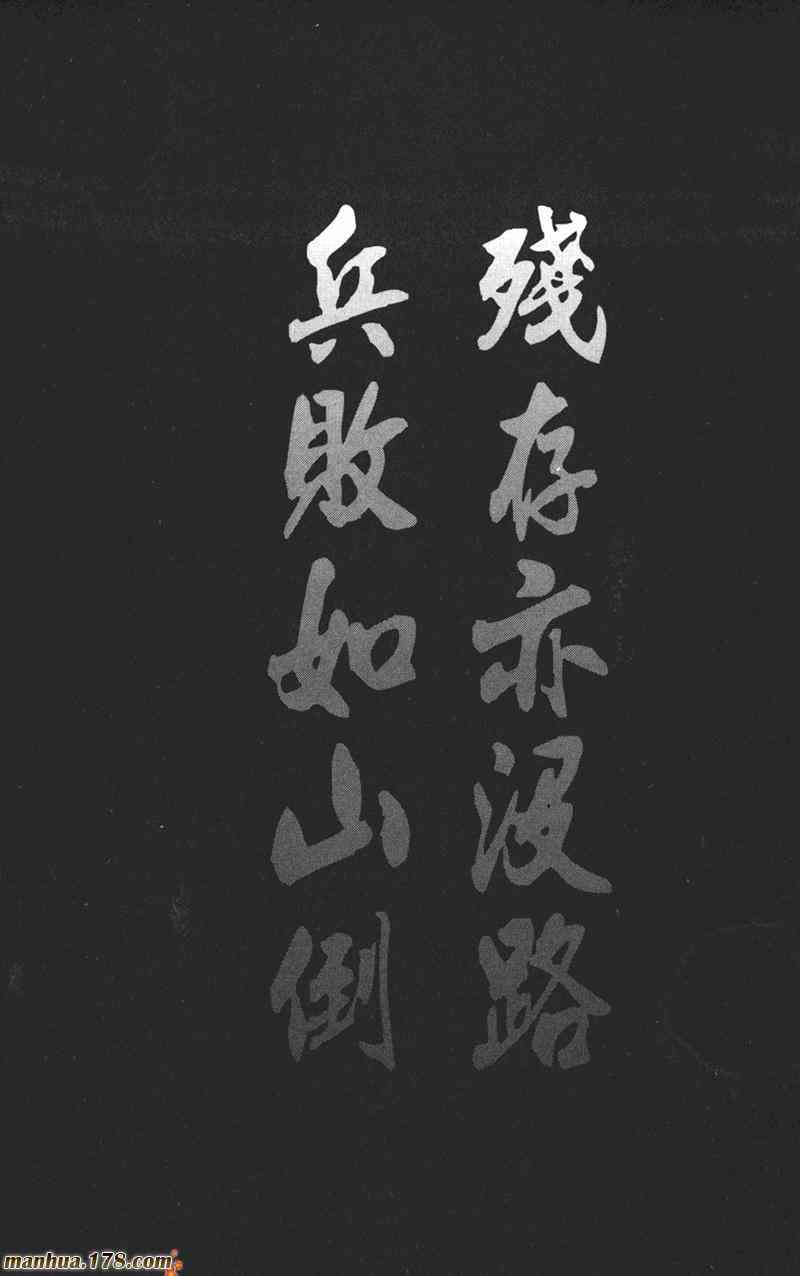 殘存亦沒路
兵敗如山倒
manhua.178.com